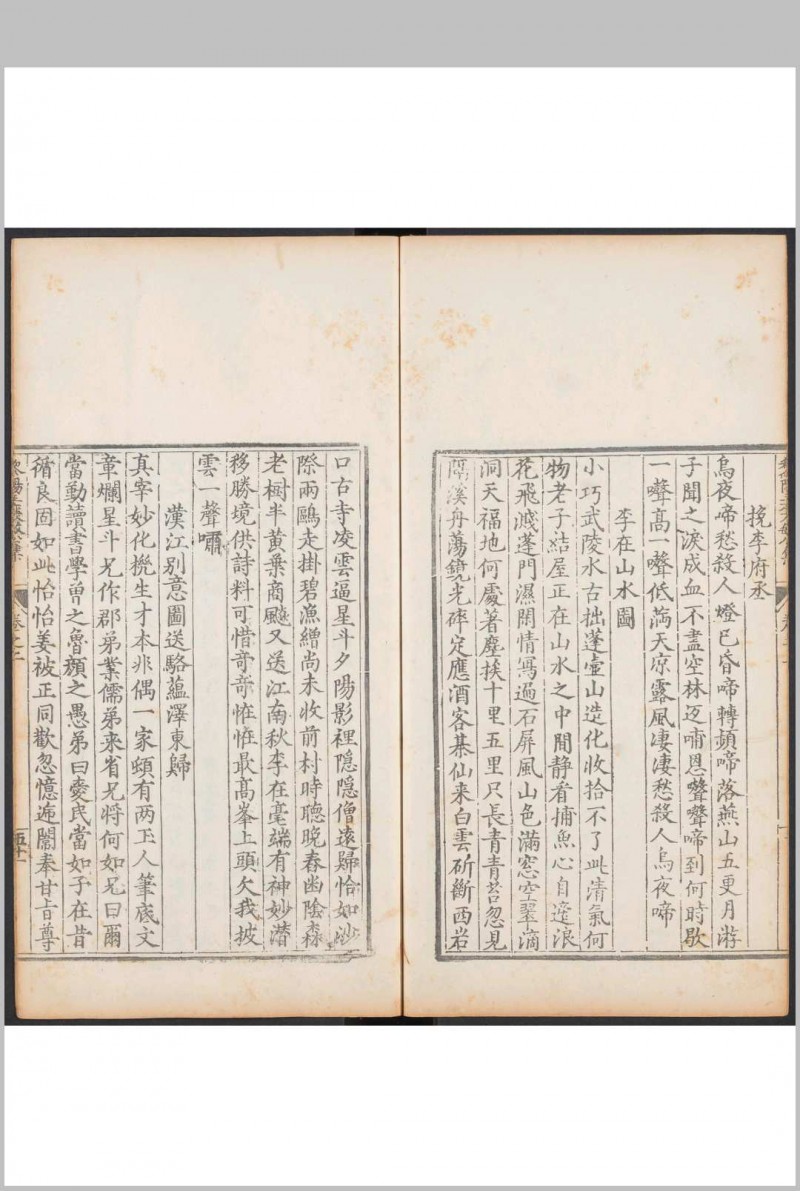 挽李府丞
烏夜啼愁殺人燈已昏啼轉頻啼落燕山五更月游
子聞之淚成血不盡空林迈哺恩聲聲啼到何時歇
一聲高一聲低滿天凉露風淒淒愁殺人烏夜啼
李在山水圖
小巧武陵水古拙蓬壷山造化收拾不了此清氣何
物老子結屋正在山水之中間静看捕魚心自逺浪
花飛濺蓬門濕閑情寫過石屏風山色滿窓空翠滴
洞天福地何處著塵挨十里五里只長青青苔忽見
隔溪舟蕩鏡光碎定應酒客棊仙来白雲斫斷西岩
口古寺凌雲逼星斗夕陽影裡隠隠僧逺歸恰如沙
際兩鷗走掛碧漁繒尚未收前村時聽晚舂幽陰森
老樹半黄葉商飈又送江南秋李在毫端有神妙潜
移勝境供詩料可惜奇奇恠恠最髙峯上頭欠我披
雲一聲嘯
漢江别意圖送駱蘊澤東歸
真宰妙化㧞生才本非偶一家頤有两玉人筆底文
章爛星斗兄作郡弟業儒弟来省兄將何如兄曰爾
當勤讀書學曽之魯顔之愚弟曰愛民當如子在昔
循良固如此怡怡姜被正同歡忽憶䢖闇奉甘旨尊
卷之二